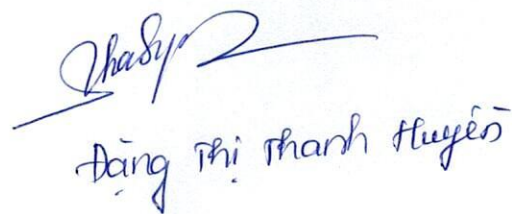 Đặng Thị Thanh Huyền